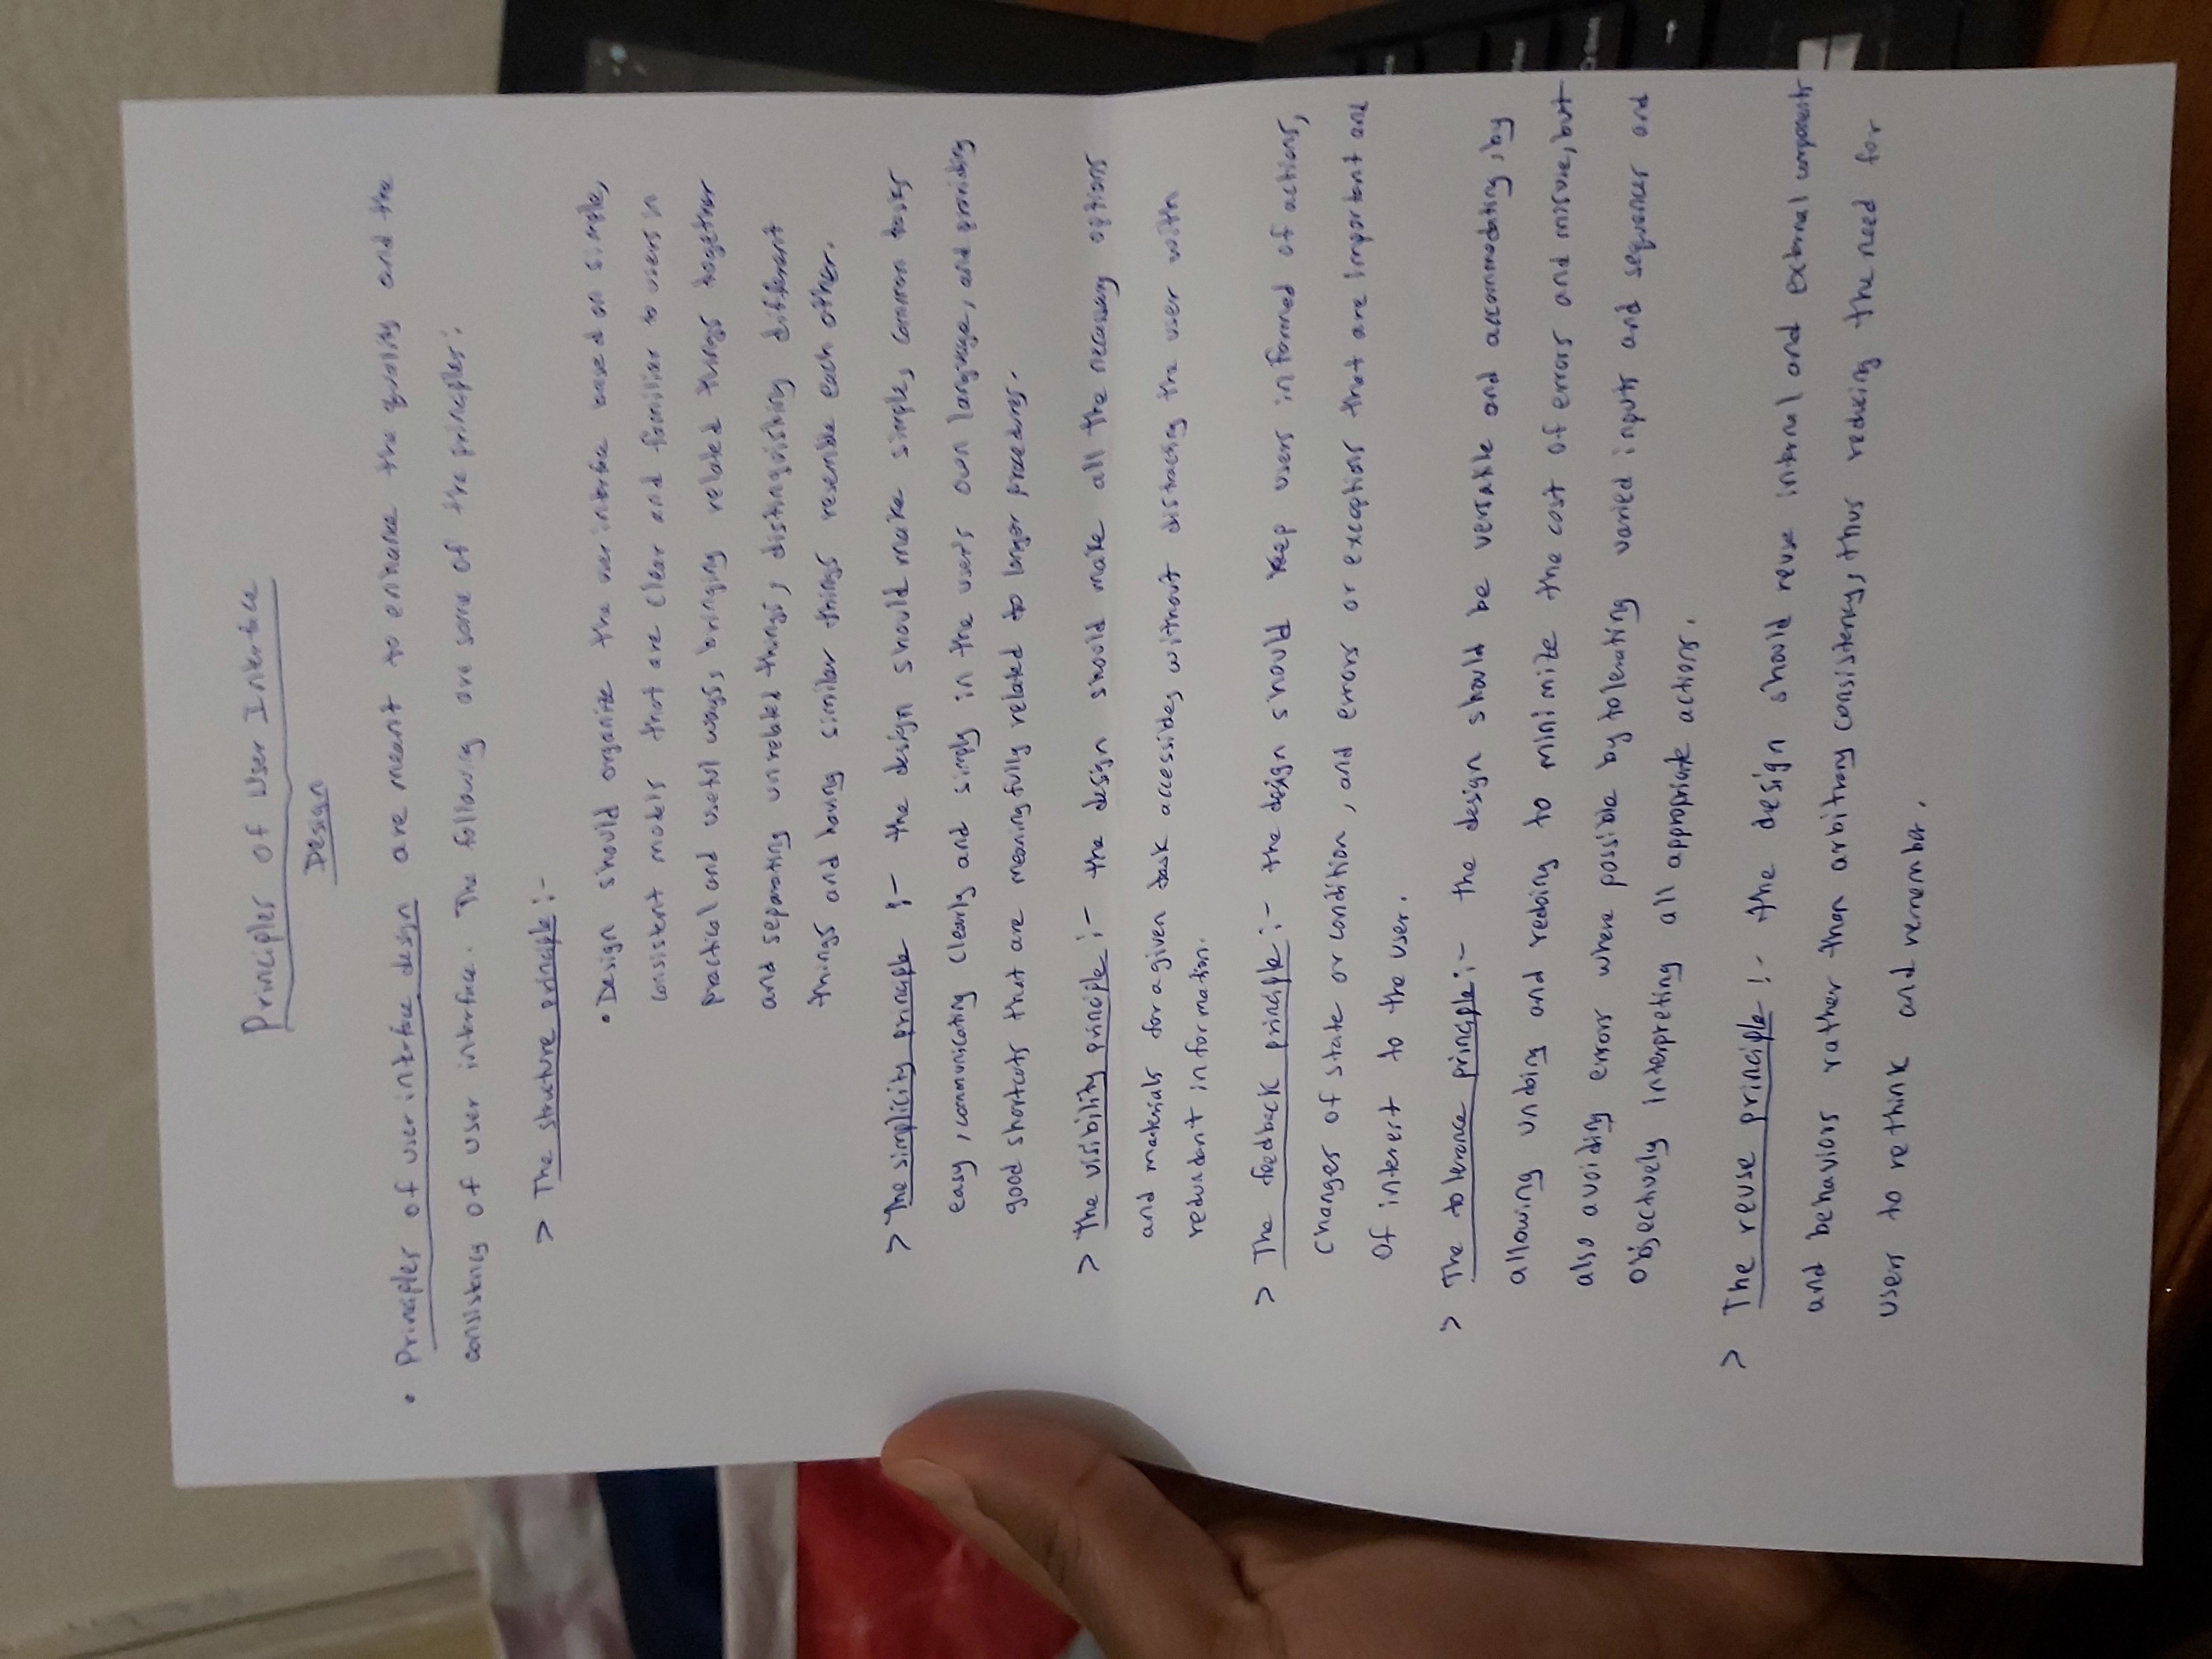 Principles of User Interface
Design
• Principles of user interface design are meant to enhance the quality and the
consistency of user interface. The following are some of the principles:
> The structure principle :-
• Design should organize the user interface based on simple,
consistent models that are clear and familiar to users in
practical and useful ways, bringing related things together
and separating unrelated things, distinguishing different
things and having similar things resemble each other.
> The simplicity principle :- the design should make simple, common tasks
easy, communicating clearly and simply in the user's own language, and providing
good shortcuts that are meaningfully related to longer procedures.
> The visibility principle :- the design should make all the necessary options
and materials for a given task accessible, without distracting the user with
redundant information.
> The feedback principle :- the design should keep users informed of actions,
changes of state or condition, and errors or exceptions that are important and
of interest to the user.
> The tolerance principle :- the design should be versatile and accommodating, by
allowing undoing and redoing to minimize the cost of errors and misuse, but
also avoiding errors where possible by tolerating varied inputs and sequences and
objectively interpreting all appropriate actions.
> The reuse principle :- the design should reuse internal and external components
and behaviors rather than arbitrary consistency, thus reducing the need for
users to rethink and remember.